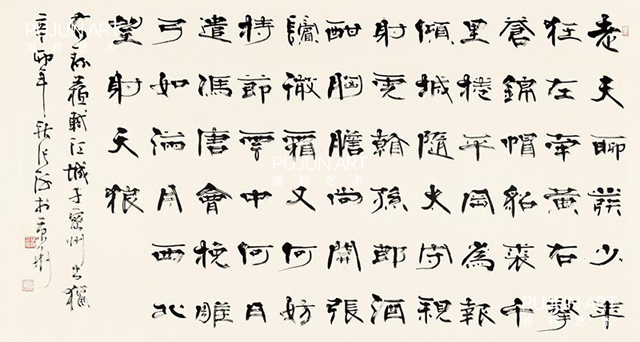 老夫聊發少年
狂左牽黃右擎
蒼錦帽貂裘千
里捲平岡為報
傾城隨太守親
射虎看孫郎酒
酣胸膽尚開張
鬢微霜又何妨
持節雲中何日
遣馮唐會挽雕
弓如滿月西北
望射天狼
蘇軾江城子密州出獵
辛卯年秋
PUJUN ART
PUJUN ART
PUJUN ART